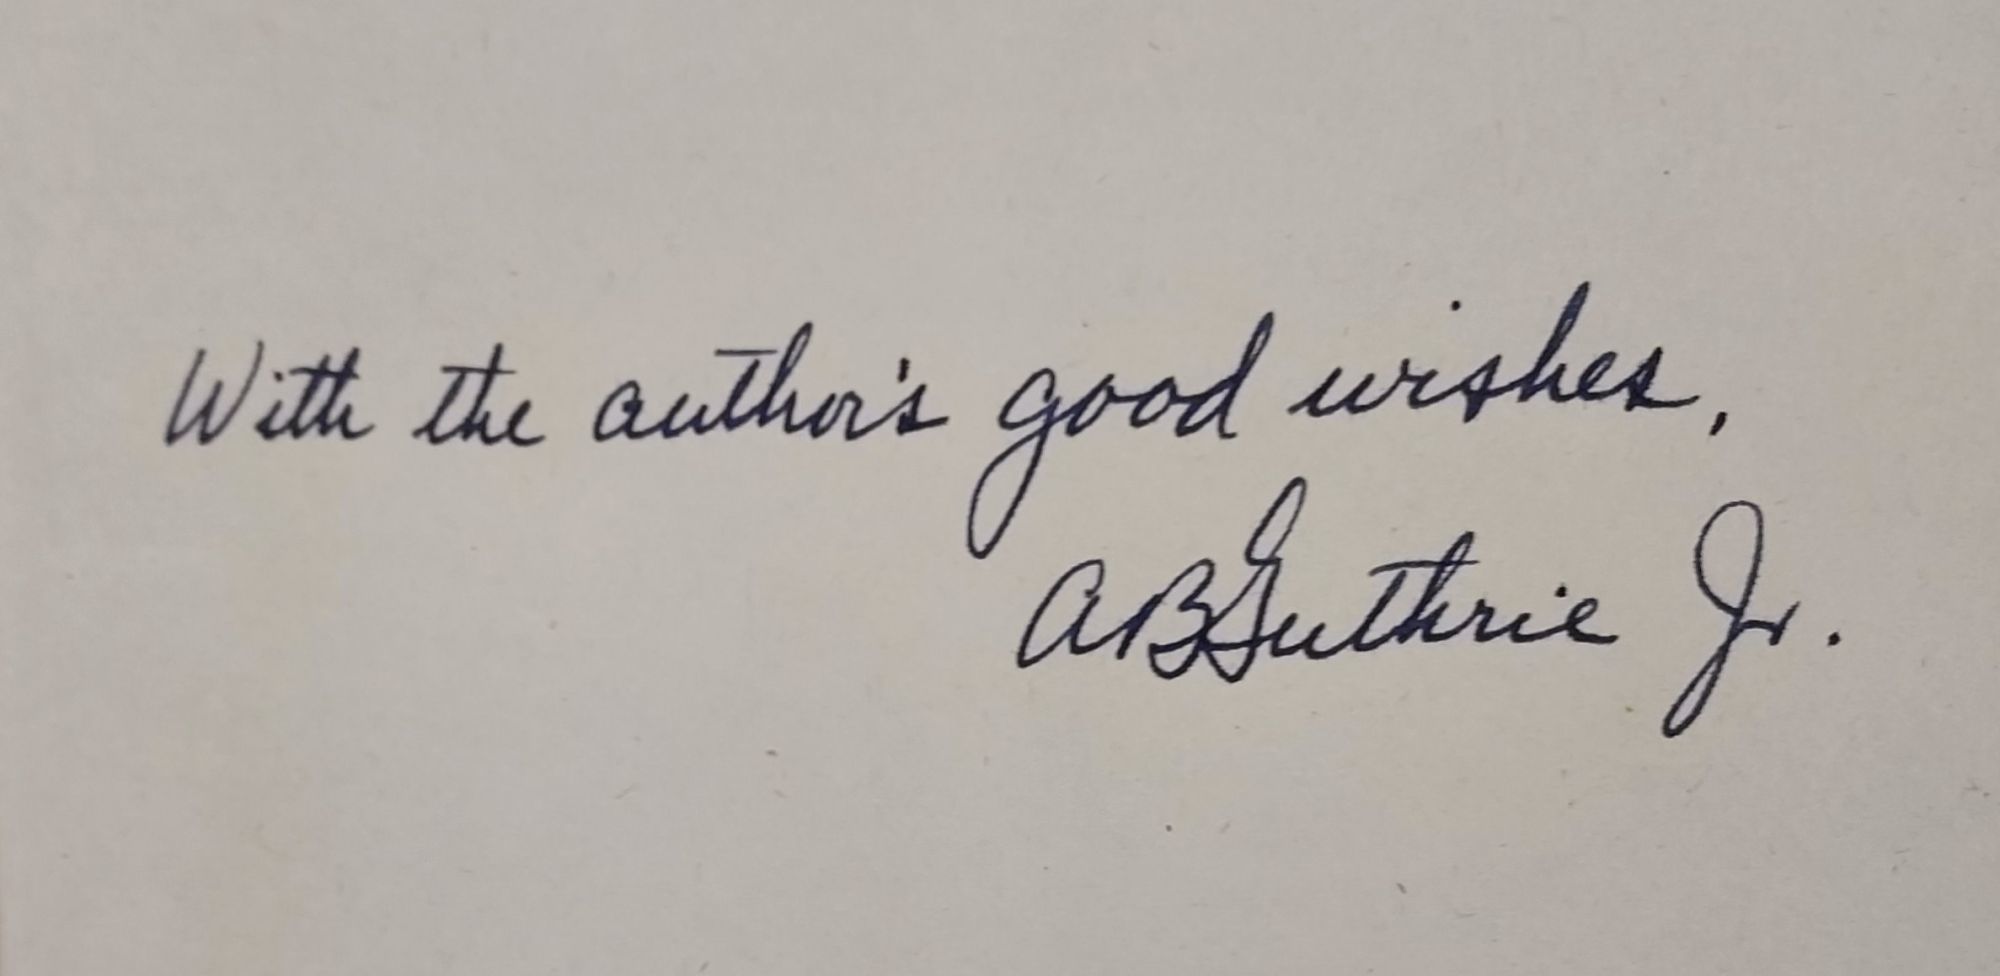 With the author's good wishes,
ABGuthrie Jr.